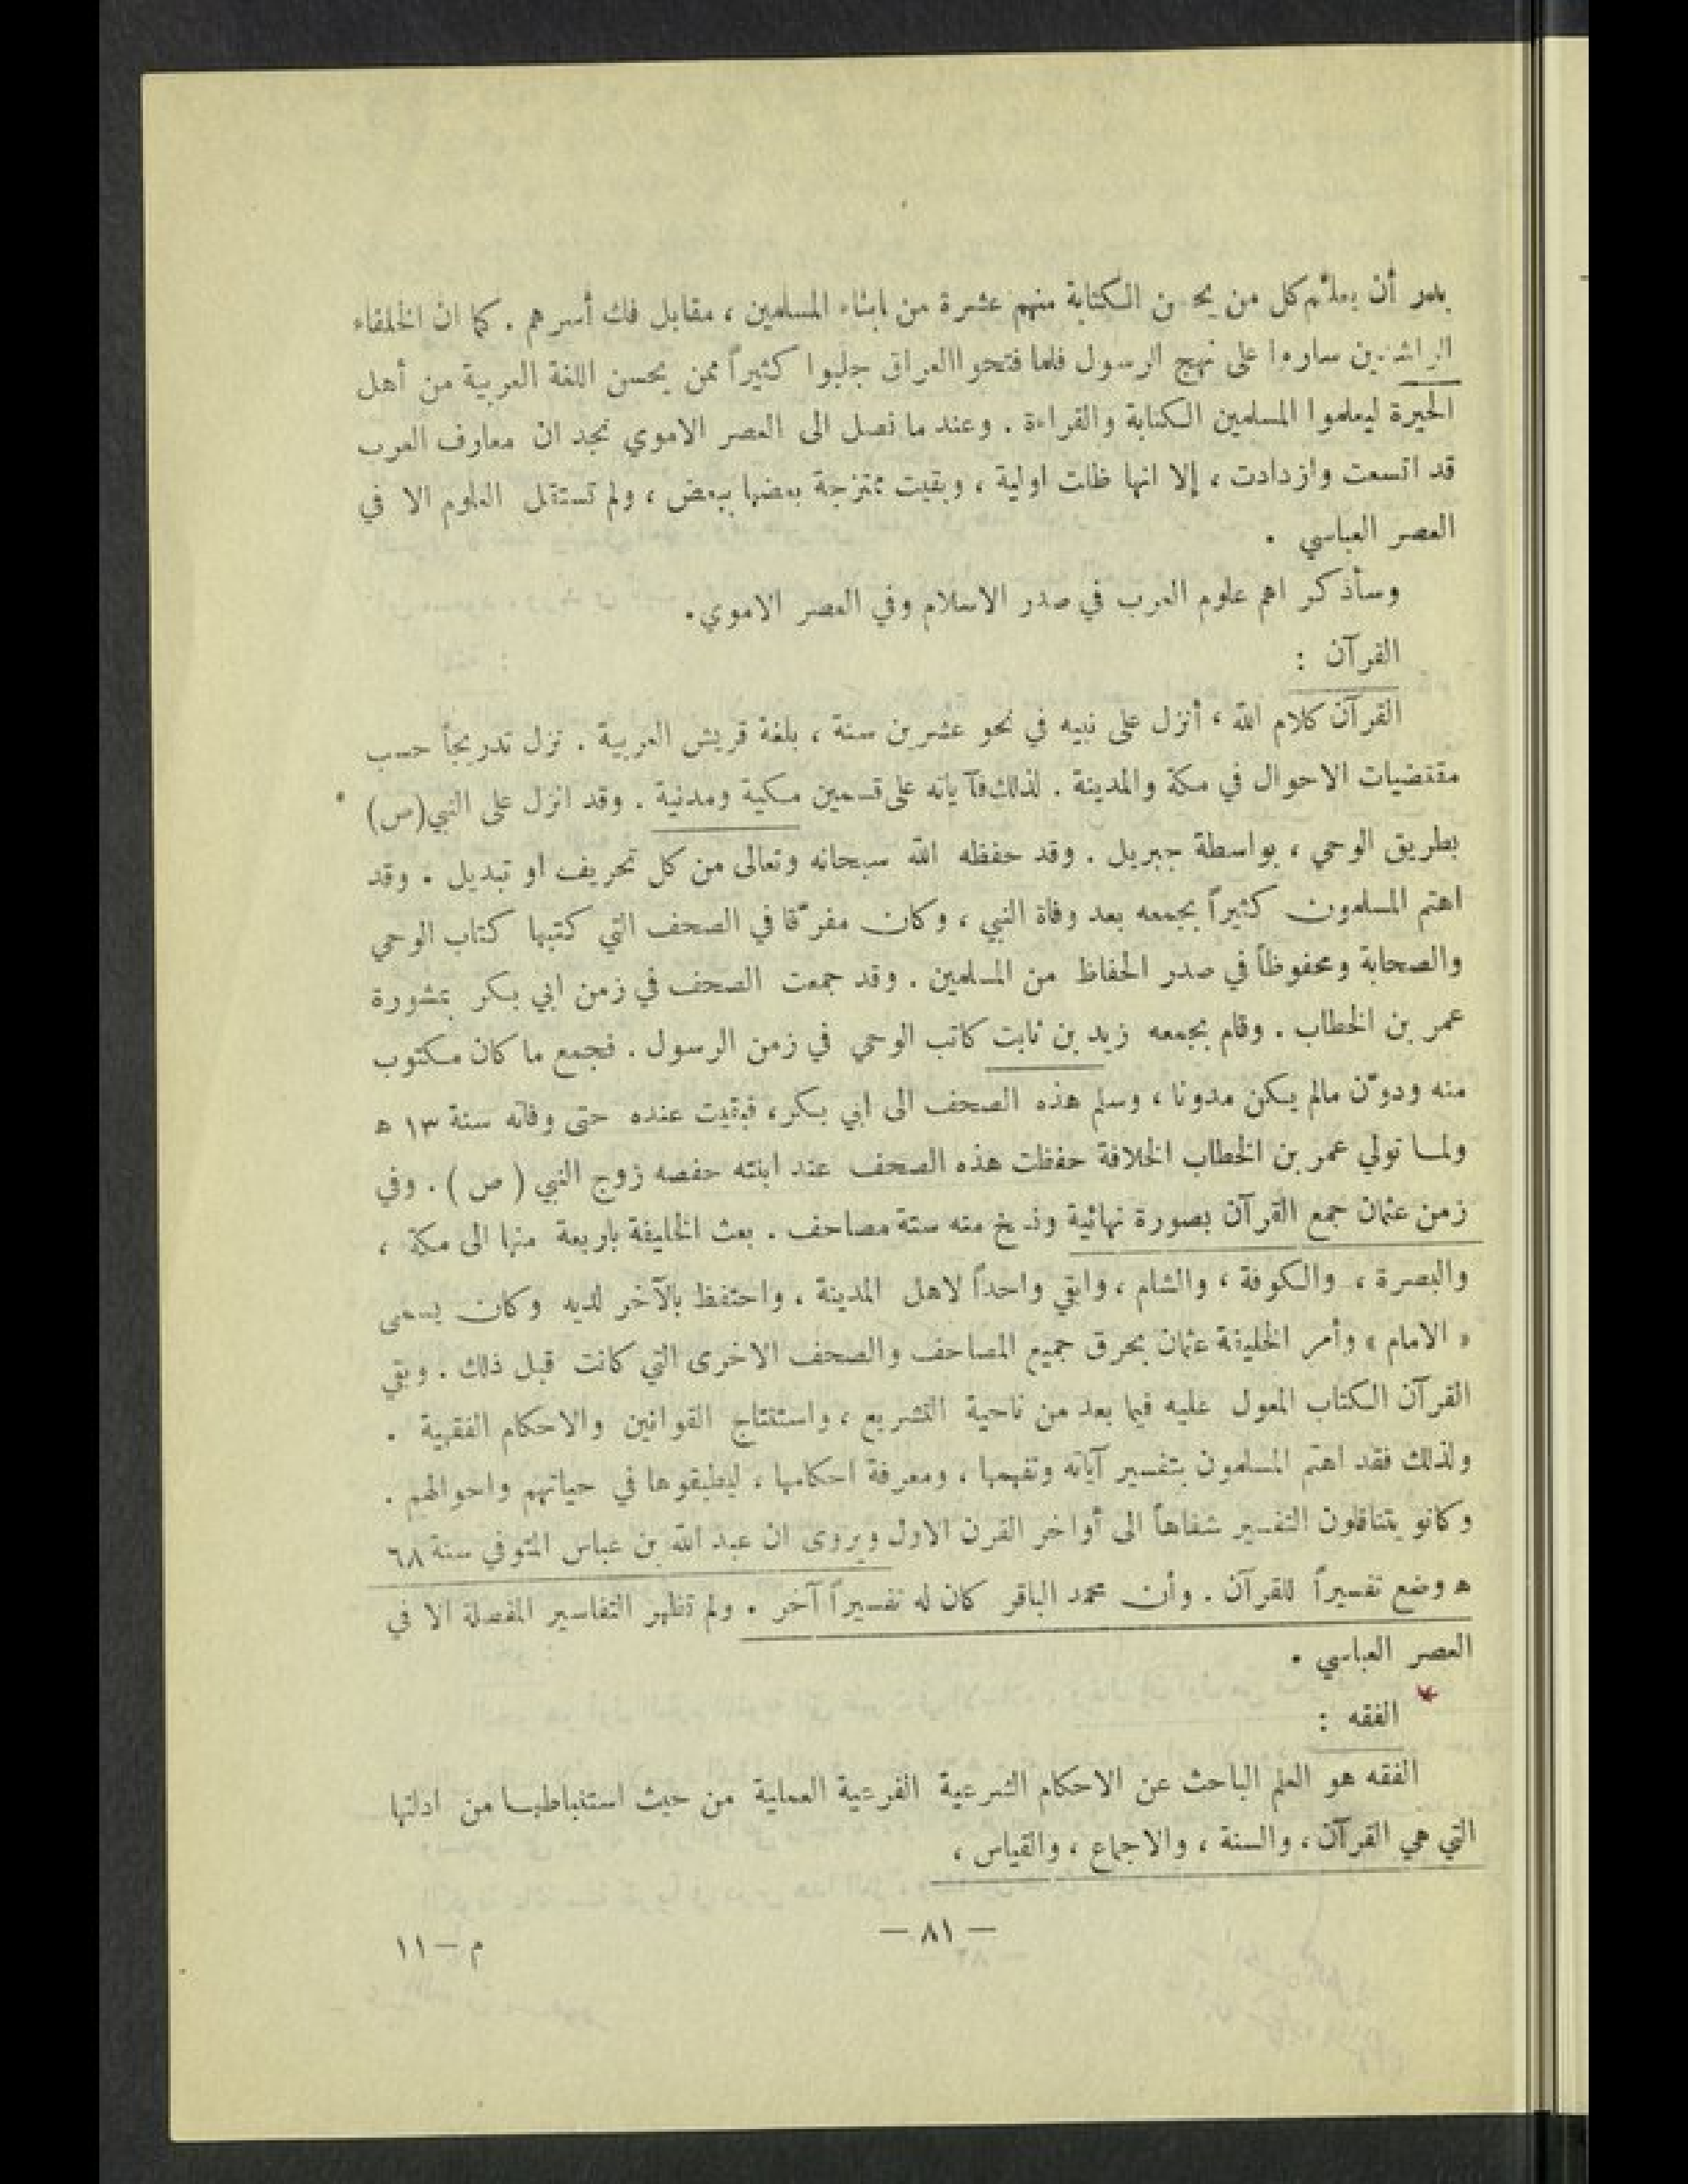 بدر أن يعلّم كل من يحسن الكتابة منهم عشرة من ابناء المسلمين ، مقابل فك أسرهم . كما ان الخلفاء
الراشدين ساروا على نهج الرسول فلما فتحوا العراق جلبوا كثيراً ممن يحسن اللغة العربية من أهل
الحيرة ليعلموا المسلمين الكتابة والقراءة . وعند ما نصل الى العصر الاموي نجد ان معارف العرب
قد اتسعت وازدادت ، إلا انها ظلت اولية ، وبقيت ممتزجة بعضها ببعض ، ولم تستقل العلوم الا في
العصر العباسي .
وسأذكر اهم علوم العرب في صدر الاسلام وفي العصر الاموي .
القرآن :
القرآن كلام الله ، أنزل على نبيه في نحو عشرين سنة ، بلغة قريش العربية . نزل تدريجاً حسب
مقتضيات الاحوال في مكة والمدينة . لذلك فآياته على قسمين مكية ومدنية . وقد انزل على النبي (ص)
بطريق الوحي ، بواسطة جبريل . وقد حفظه الله سبحانه وتعالى من كل تحريف او تبديل . وقد
اهتم المسلمون كثيراً بجمعه بعد وفاة النبي ، وكان مفرّقا في الصحف التي كتبها كتاب الوحي
والصحابة ومحفوظاً في صدر الحفاظ من المسلمين . وقد جمعت الصحف في زمن ابي بكر بمشورة
عمر بن الخطاب . وقام بجمعه زيد بن ثابت كاتب الوحي في زمن الرسول . فجمع ما كان مكتوب
منه ودوّن مالم يكن مدونا ، وسلم هذه الصحف الى ابي بكر ، فبقيت عنده حتى وفاته سنة ١٣ ه
ولما تولي عمر بن الخطاب الخلافة حفظت هذه الصحف عند ابنته حفصه زوج النبي ( ص ) . وفي
زمن عثمان جمع القرآن بصورة نهائية ونسخ منه ستة مصاحف . بعث الخليفة باربعة منها الى مكة ،
والبصرة ، والكوفة ، والشام ، وابقي واحداً لاهل المدينة . واحتفظ بالآخر لديه وكان يسمى
« الامام » وأمر الخليفة عثمان بحرق جميع المصاحف والصحف الاخرى التي كانت قبل ذلك . وبقي
القرآن الكتاب المعول عليه فيما بعد من ناحية التشريع ، واستنتاج القوانين والاحكام الفقهية .
ولذلك فقد اهتم المسلمون بتفسير آياته وتفهمها ، ومعرفة احكامها ، ليطبقوها في حياتهم واحوالهم .
وكانو يتناقلون التفسير شفاهاً الى أواخر القرن الاول ويروى ان عبد الله بن عباس المتوفي سنة ٦٨
ه وضع تفسيراً للقرآن . وأن محمد الباقر كان له تفسيراً آخر . ولم تظهر التفاسير المفصلة الا في
العصر العباسي .
الفقه :
الفقه هو العلم الباحث عن الاحكام الشرعية الفرعية العملية من حيث استنباطها من ادلتها
التي هي القرآن ، والسنة ، والاجماع ، والقياس ،
— ٨١ —
م — ١١